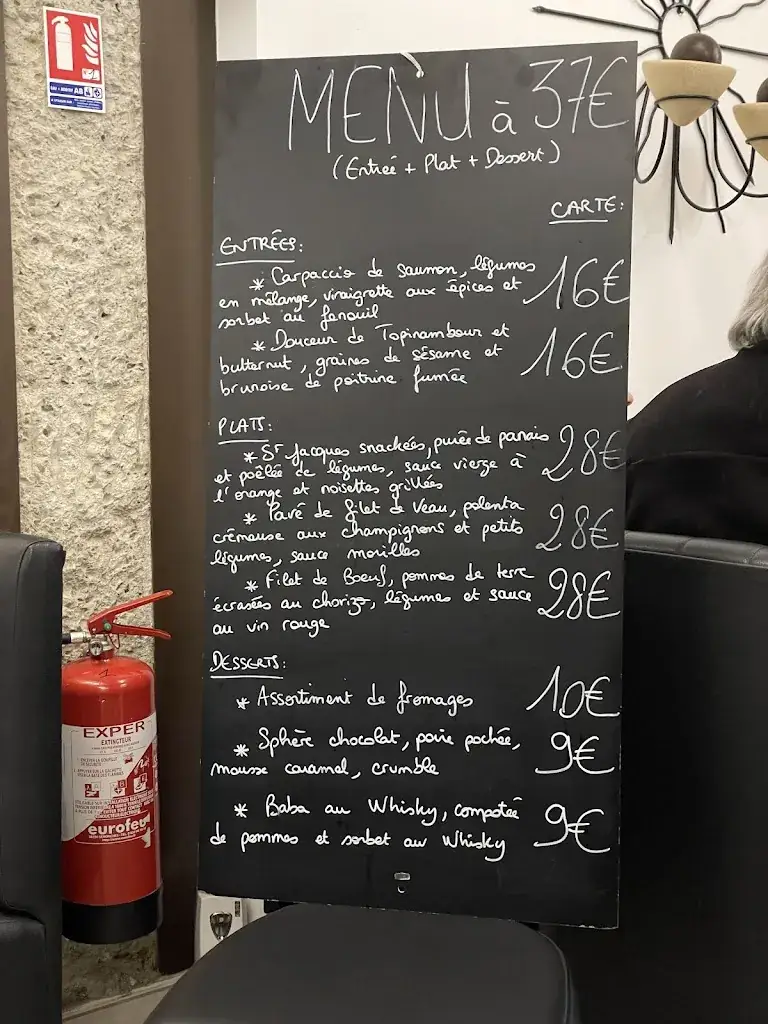 MENU à 37€
(Entrée + Plat + Dessert)
CARTE:
ENTRÉES:
* Carpaccio de saumon, légumes
en mélange, vinaigrette aux épices et 16€
sorbet au fenouil
* Douceur de Topinambour et
butternut, graines de sésame et 16€
brunoise de poitrine fumée
PLATS:
* St Jacques snackées, purée de panais
et poêlée de légumes, sauce vierge à 28€
l'orange et noisettes grillées
* Pavé de filet de Veau, polenta
crémeuse aux champignons et petits 28€
légumes, sauce morilles
* Filet de Boeuf, pommes de terre
écrasées au chorizo, légumes et sauce 28€
au vin rouge
DESSERTS:
* Assortiment de fromages 10€
* Sphère chocolat, poire pochée,
mousse caramel, crumble 9€
* Baba au Whisky, compotée
de pommes et sorbet au Whisky 9€
EXPER
EXTINCTEUR
eurofeu